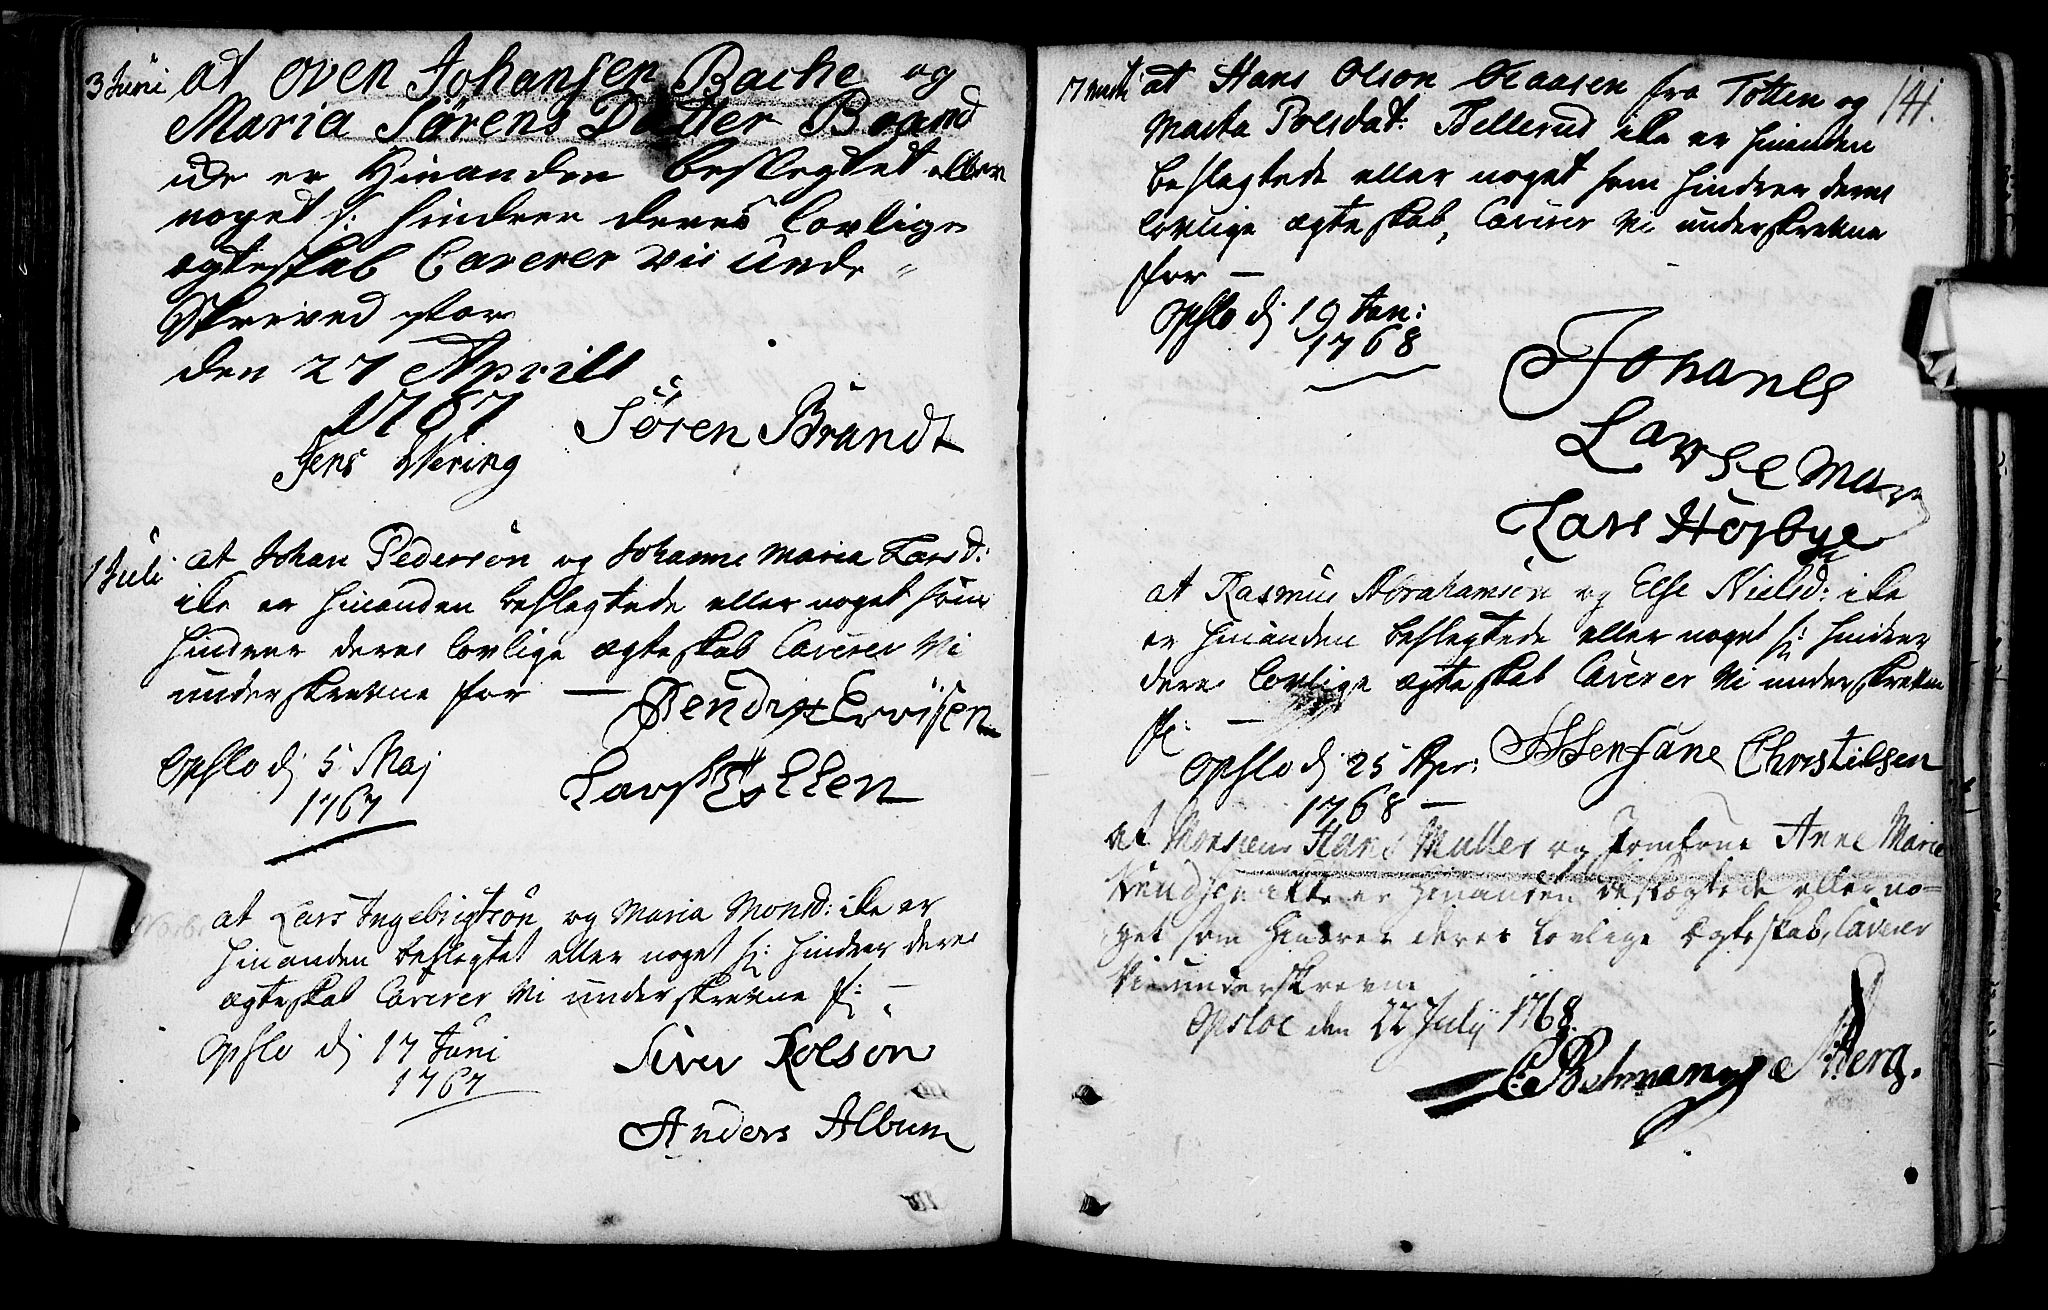 3 Juni at Oven Johansen Bache og
Maria Sørens Datter Brand
icke er Hinanden beslegtet eller
noget s: hindrer deres lovlige
ægteskab Caverer vii unde-
Skreved for
den 27 Aprill
1767
Søren Brandt
Jens Wering
1 Juli at Johan Pedersøn og Johanne Maria Larsd:
ike er hinanden beslegtede eller noget som
hindrer deres lovlige ægteskab Caverer Vi
underskrevne for —
Opslo d 5 Maj
1767
at Lars Ingebrigtsøn og Maria Monsd: ike er
hinanden beslegtet eller noget s: hindrer deres
ægteskab Caverer Vi underskrevne f: -
Opslo d 17 Juni
1767
Siver Rolson
Anders Album
141.
at Hans Olson Klaasen fra Totten og
Marta Poelsdat: Bellerud ike er hinanden
beslegtede eller noget som hindrer deres
lovlige ægteskab, Caverer Vi underskrevne
for —
Opslo d 19 Jan:
1768
Johanes
Larsse
Lars Høybye
at Rasmus Abrahamsøn og Else Nielsd: ike
er hinanden beslegtede eller noget s: hindrer
deres lovlige ægteskab Caverer Vi underskrevne
f: —
Opslo d 25 Apr:
1768 —
Christilsen
at Monsieur Hans Muller og Jomfrue Anne Marie
ikke er hinanden beslægtede eller no-
get som hindrer deres lovlige Ægteskab, Caverer
Vi underskrevne
Opsloe den 22 Julij 1768.